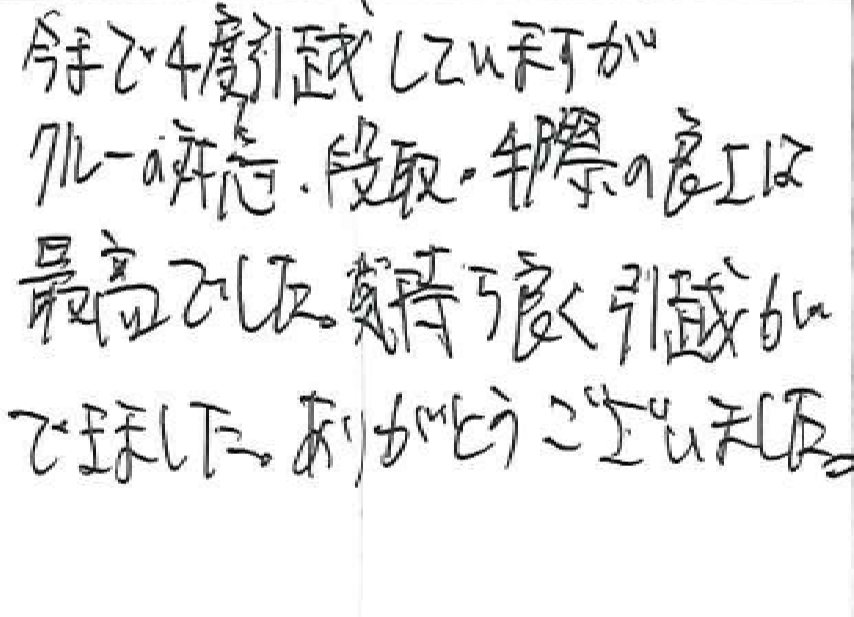 今まで4度引越していますが
クルーの対応、段取・手際の良さは
最高でした。気持ち良く引越が
できました。ありがとうございました。